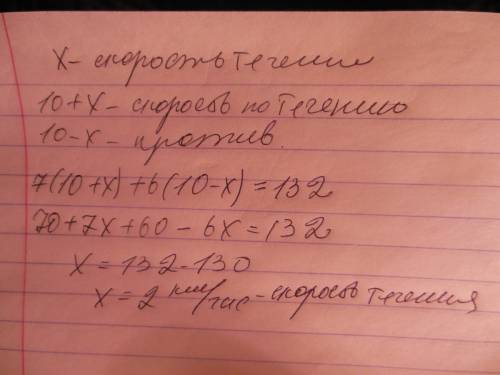 x - скорость течения
10+x - скорость по течению
10-x - против.
7(10+x)+6(10-x)=132
70+7x+60-6x=132
x=132-130
x=2 км/час - скорость течения